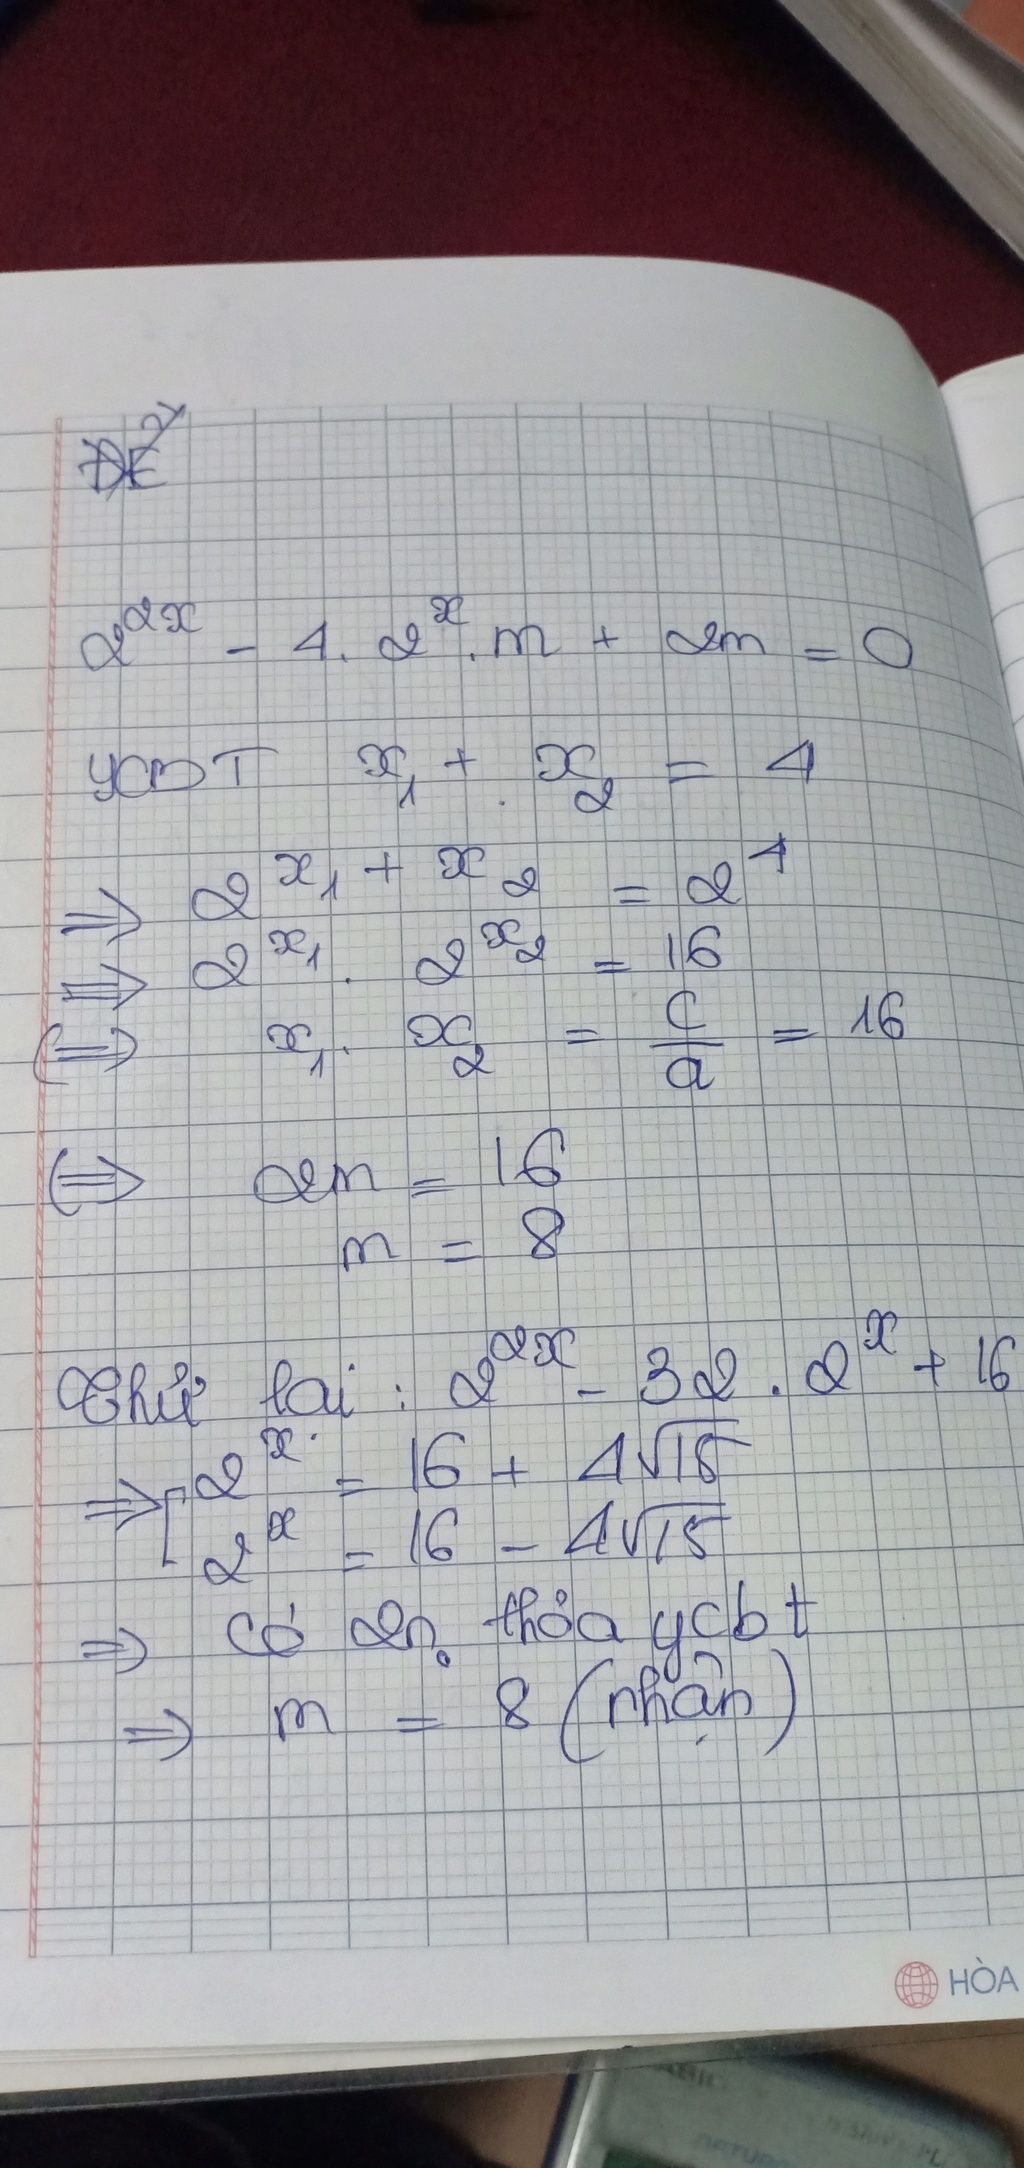 2^{2x} - 4. 2^x . m + 2m = 0
YCBT x_1 + x_2 = 4
⇒ 2^{x_1 + x_2} = 2^4
⇒ 2^{x_1} . 2^{x_2} = 16
(⇒) x_1 . x_2 = c/a = 16
(⇒) 2m = 16
m = 8
Thử lại : 2^{2x} - 32 . 2^x + 16
⇒ [ 2^x = 16 + 4√15
2^x = 16 - 4√15
⇒ Có 2n. thỏa ycbt
⇒ m = 8 (nhận)
HÒA